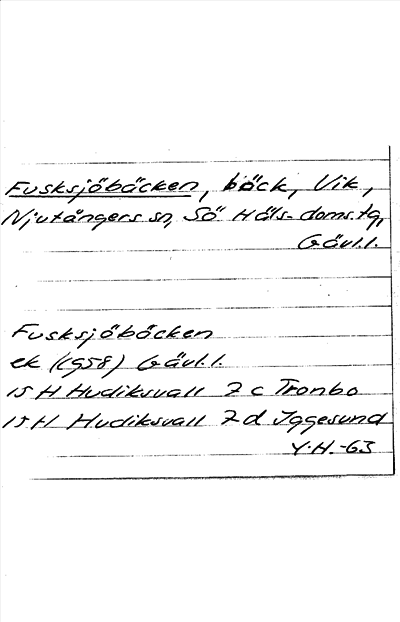 Fusksjöbäcken, bäck, Vik,
Njutångers sn, Sö Häls. doms. tg,
Gävl.l.
Fusksjöbäcken
ek (1958) Gävl.l.
15 H Hudiksvall 7 c Tronbo
15 H Hudiksvall 7 d Iggesund
Y.H.-63